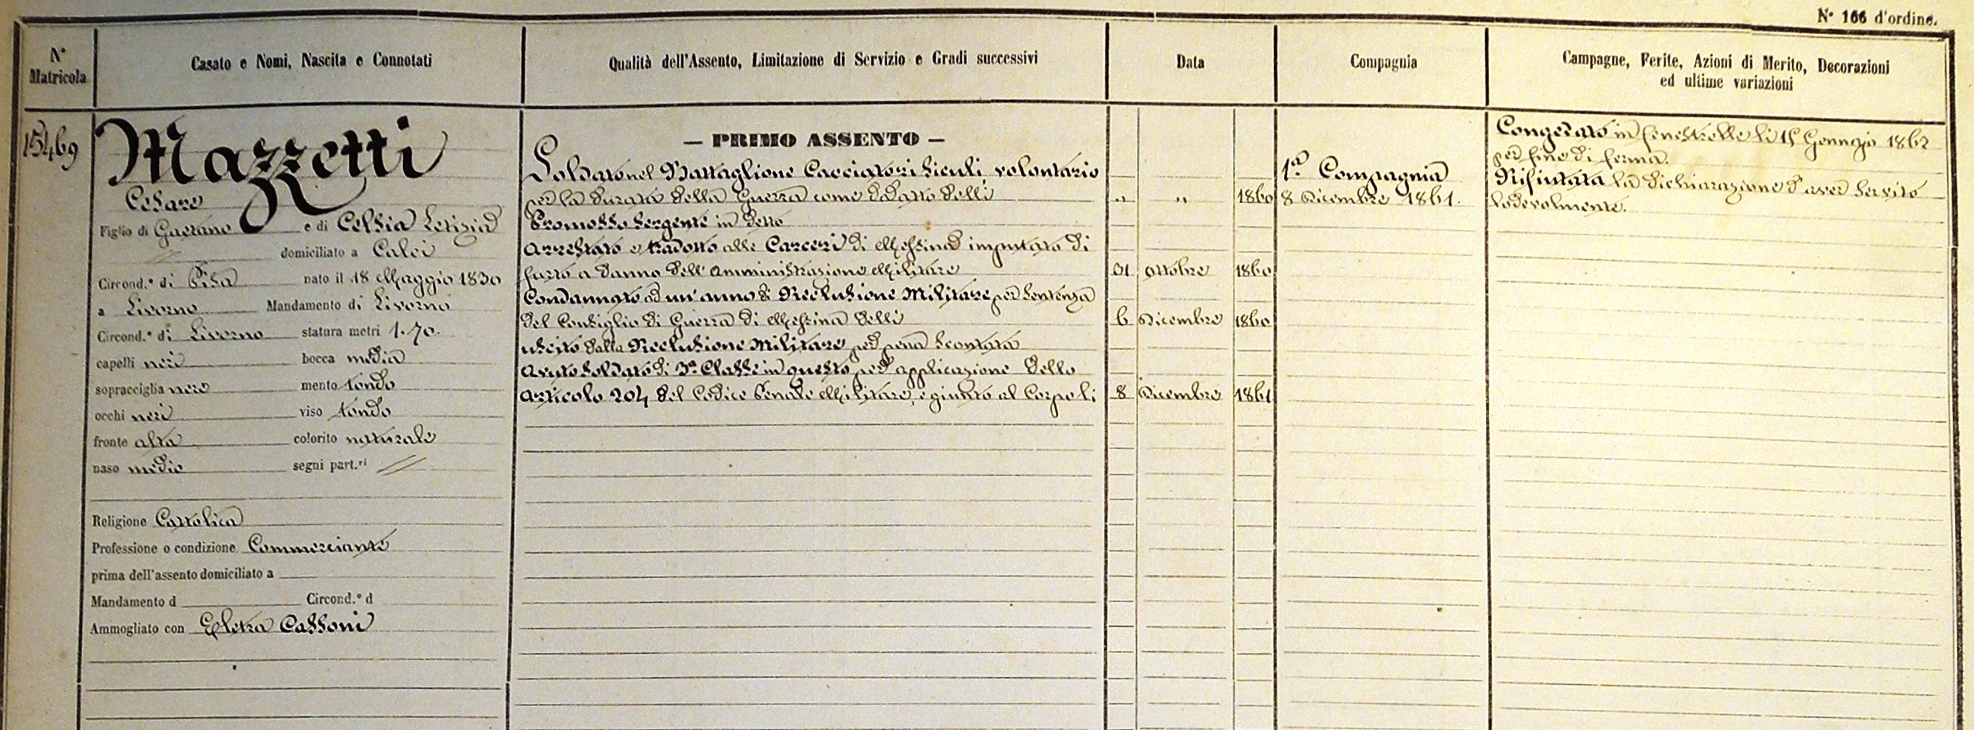 N° 166 d'ordine.
N° Matricola
Casato e Nomi, Nascita e Connotati
Qualità dell'Assento, Limitazione di Servizio e Gradi successivi
Data
Compagnia
Campagne, Ferite, Azioni di Merito, Decorazioni
ed ultime variazioni
15469
Mazzetti
Cesare
Figlio di Gaetano e di Celsia Letizia
domiciliato a Calci
Circond.° di Pisa nato il 18 Maggio 1830
a Livorno Mandamento di Livorno
Circond.° di Livorno statura metri 1.70.
capelli neri bocca media
sopracciglia nere mento tondo
occhi neri viso tondo
fronte alta colorito naturale
naso medio segni part.ri //
Religione Cattolica
Professione o condizione Commerciante
prima dell'assento domiciliato a
Mandamento d Circond.° d
Ammogliato con Eletra Cassoni
— PRIMO ASSENTO —
Soldato nel Battaglione Cacciatori Siculi, volontario
per la durata della Guerra come da atto delli „ „ 1860
Promosso Sergente in detto
Arrestato e tradotto alle Carceri di Messina imputato di
furto a danno dell'Amministrazione Militare 31 Ottobre 1860
Condannato ad un'anno di Reclusione Militare per Sentenza
del Consiglio di Guerra di Messina delli 6 Dicembre 1860
uscito dalla Reclusione Militare per pena scontata
Avuto Soldato di 3a Classe in questo per applicazione dello
articolo 204 del Codice Penale Militare, e giunto al Corpo li 8 Dicembre 1861
1a Compagnia
8 Dicembre 1861.
Congedato in Fenestrelle li 15 Gennajo 1862
per fine di ferma.
Rifiutata la dichiarazione d'aver servito
lodevolmente.